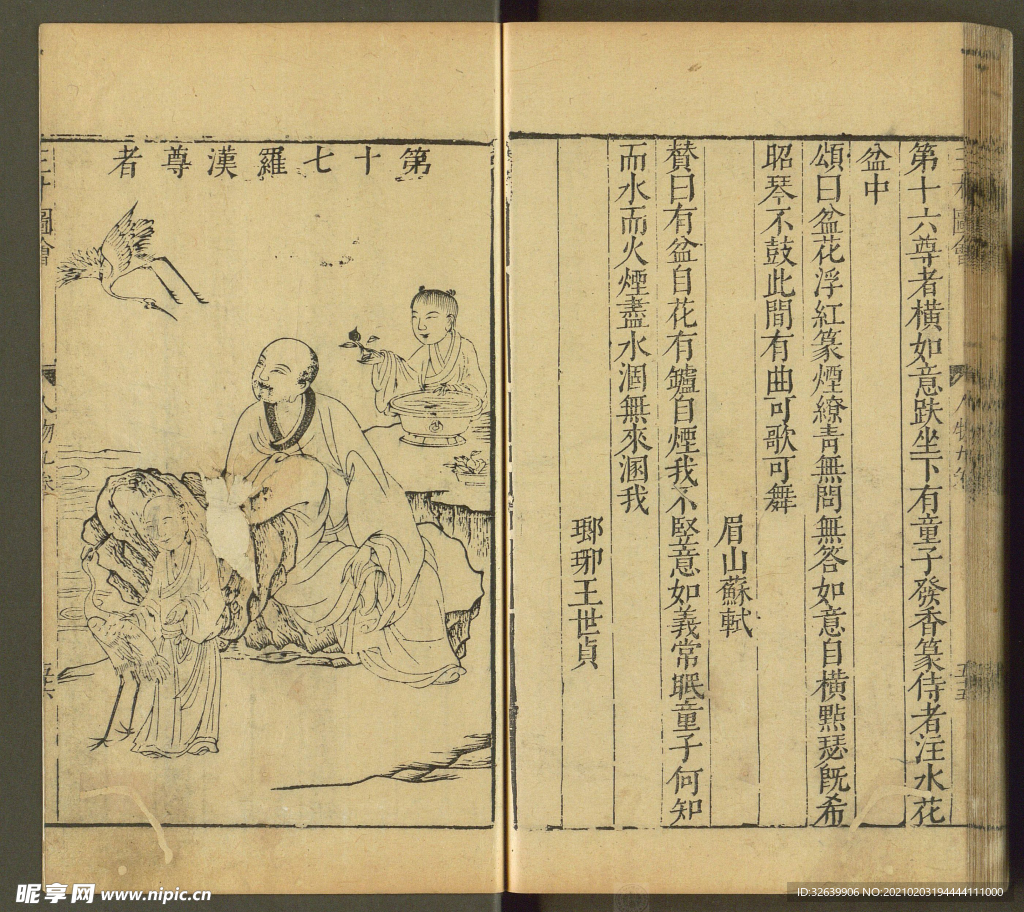 第十六尊者橫如意趺坐下有童子發香篆侍者注水花
盆中
頌曰盆花浮紅篆煙繚青無問無答如意自橫㸃瑟旣希
昭琴不鼓此間有曲可歌可舞
眉山蘇軾
贊曰有盆自花有鑪自煙我不竪意如義常眠童子何知
而水而火煙盡水涸無來溷我
瑯琊王世貞
第十七羅漢尊者
圖會
人物九卷
昵享网 www.nipic.cn
ID:32639906 NO:20210203194444111000